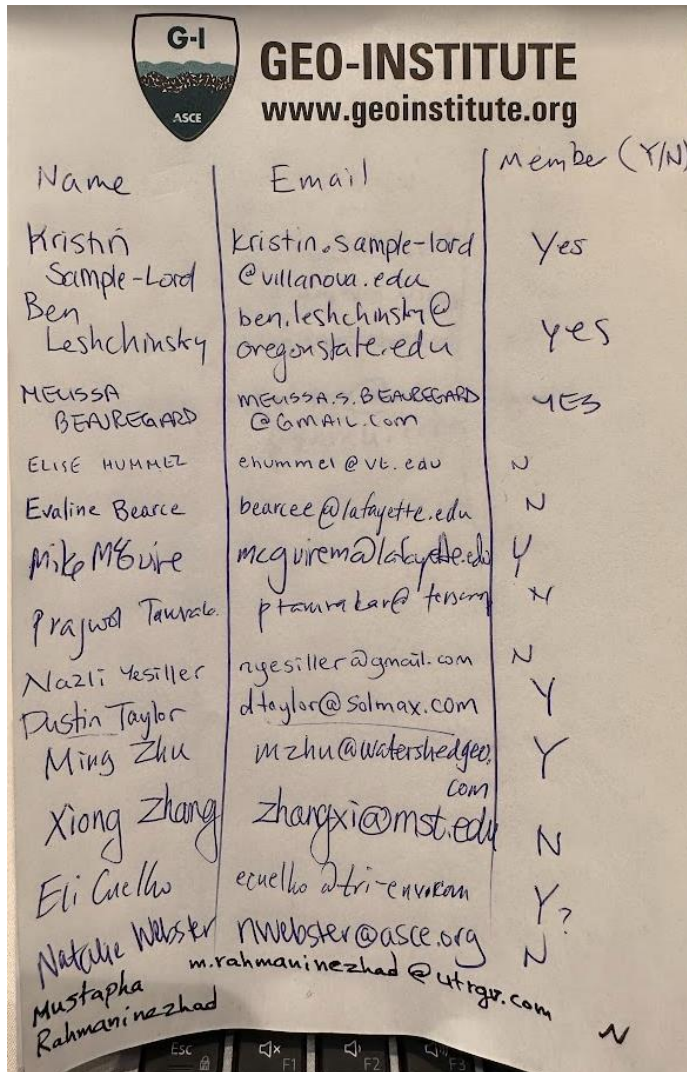 G-I
ASCE
GEO-INSTITUTE
www.geoinstitute.org
Name Email Member (Y/N)
Kristin kristin.sample-lord Yes
Sample-Lord @villanova.edu
Ben ben.leshchinsky@
Leshchinsky oregonstate.edu yes
MELISSA MELISSA.S.BEAUREGARD YES
BEAUREGARD @GMAIL.com
ELISE HUMMEL ehummel@vt.edu N
Evaline Bearce bearcee@lafayette.edu N
Mike McGuire mcguirem@lafayette.edu Y
Prajwol ptamrakar@ N
Nazli Yesiller nyesiller@gmail.com N
Dustin Taylor dtaylor@solmax.com Y
Ming Zhu mzhu@watershedgeo. Y
com
Xiong Zhang zhangxi@mst.edu N
Eli Cuelho ecuelho@tri-env.com Y?
Natalie Webster nwebster@asce.org N
Mustapha m.rahmaninezhad@utrgv.com
Rahmaninezhad N
Esc F1 F2 F3